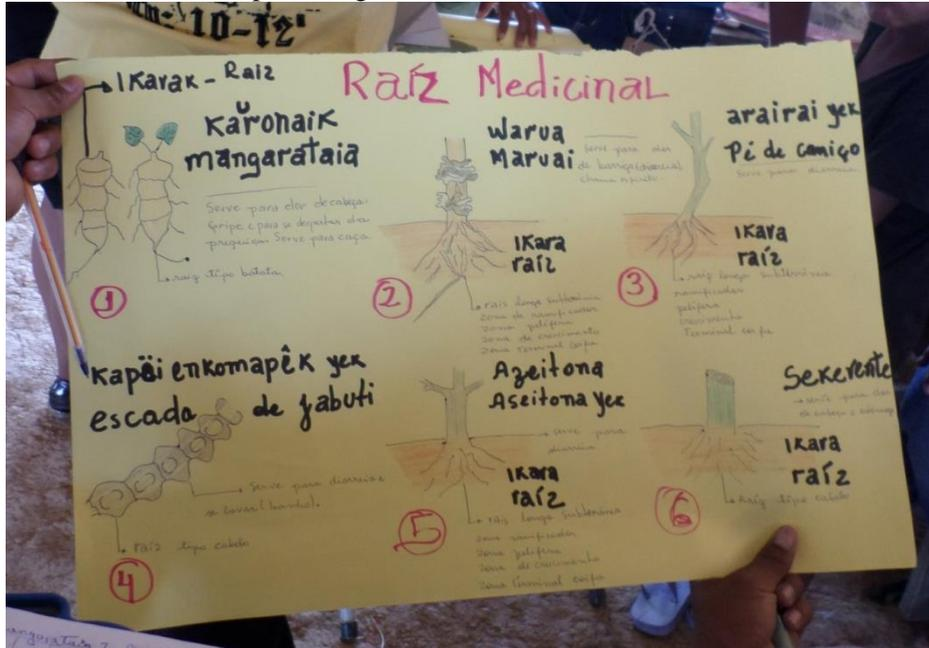 10-12
Raíz Medicinal
Ikarak - Raiz
Karonaik
mangarataia
Serve para dor de cabeça.
Gripe e para se despertar da
preguiça. Serve para caça
raiz tipo batata
1
Warua
Maruai
Serve para dor
de barriga (diarreia)
Ikara
raíz
raís longa subterrânia
zona de ramificador
zona pelífera
zona de crescimento
zona terminal coifa
2
arairai yek
Pé de camiço
Serve para diarreia
Ikara
raíz
raíz longa subterrânia
ramificador
pelífera
crescimento
Terminal coifa
3
escada de jabuti
Serve para diarreia e
se lavar (banho).
raíz tipo cabelo
4
Azeitona
Aseitona yek
serve para
diarreia
Ikara
raíz
raís longa subterrânia
zona ramificador
zona pelífera
zona de crescimento
zona terminal coifa
5
Sekerente
Ikara
raíz
Raíz tipo cabelo
6